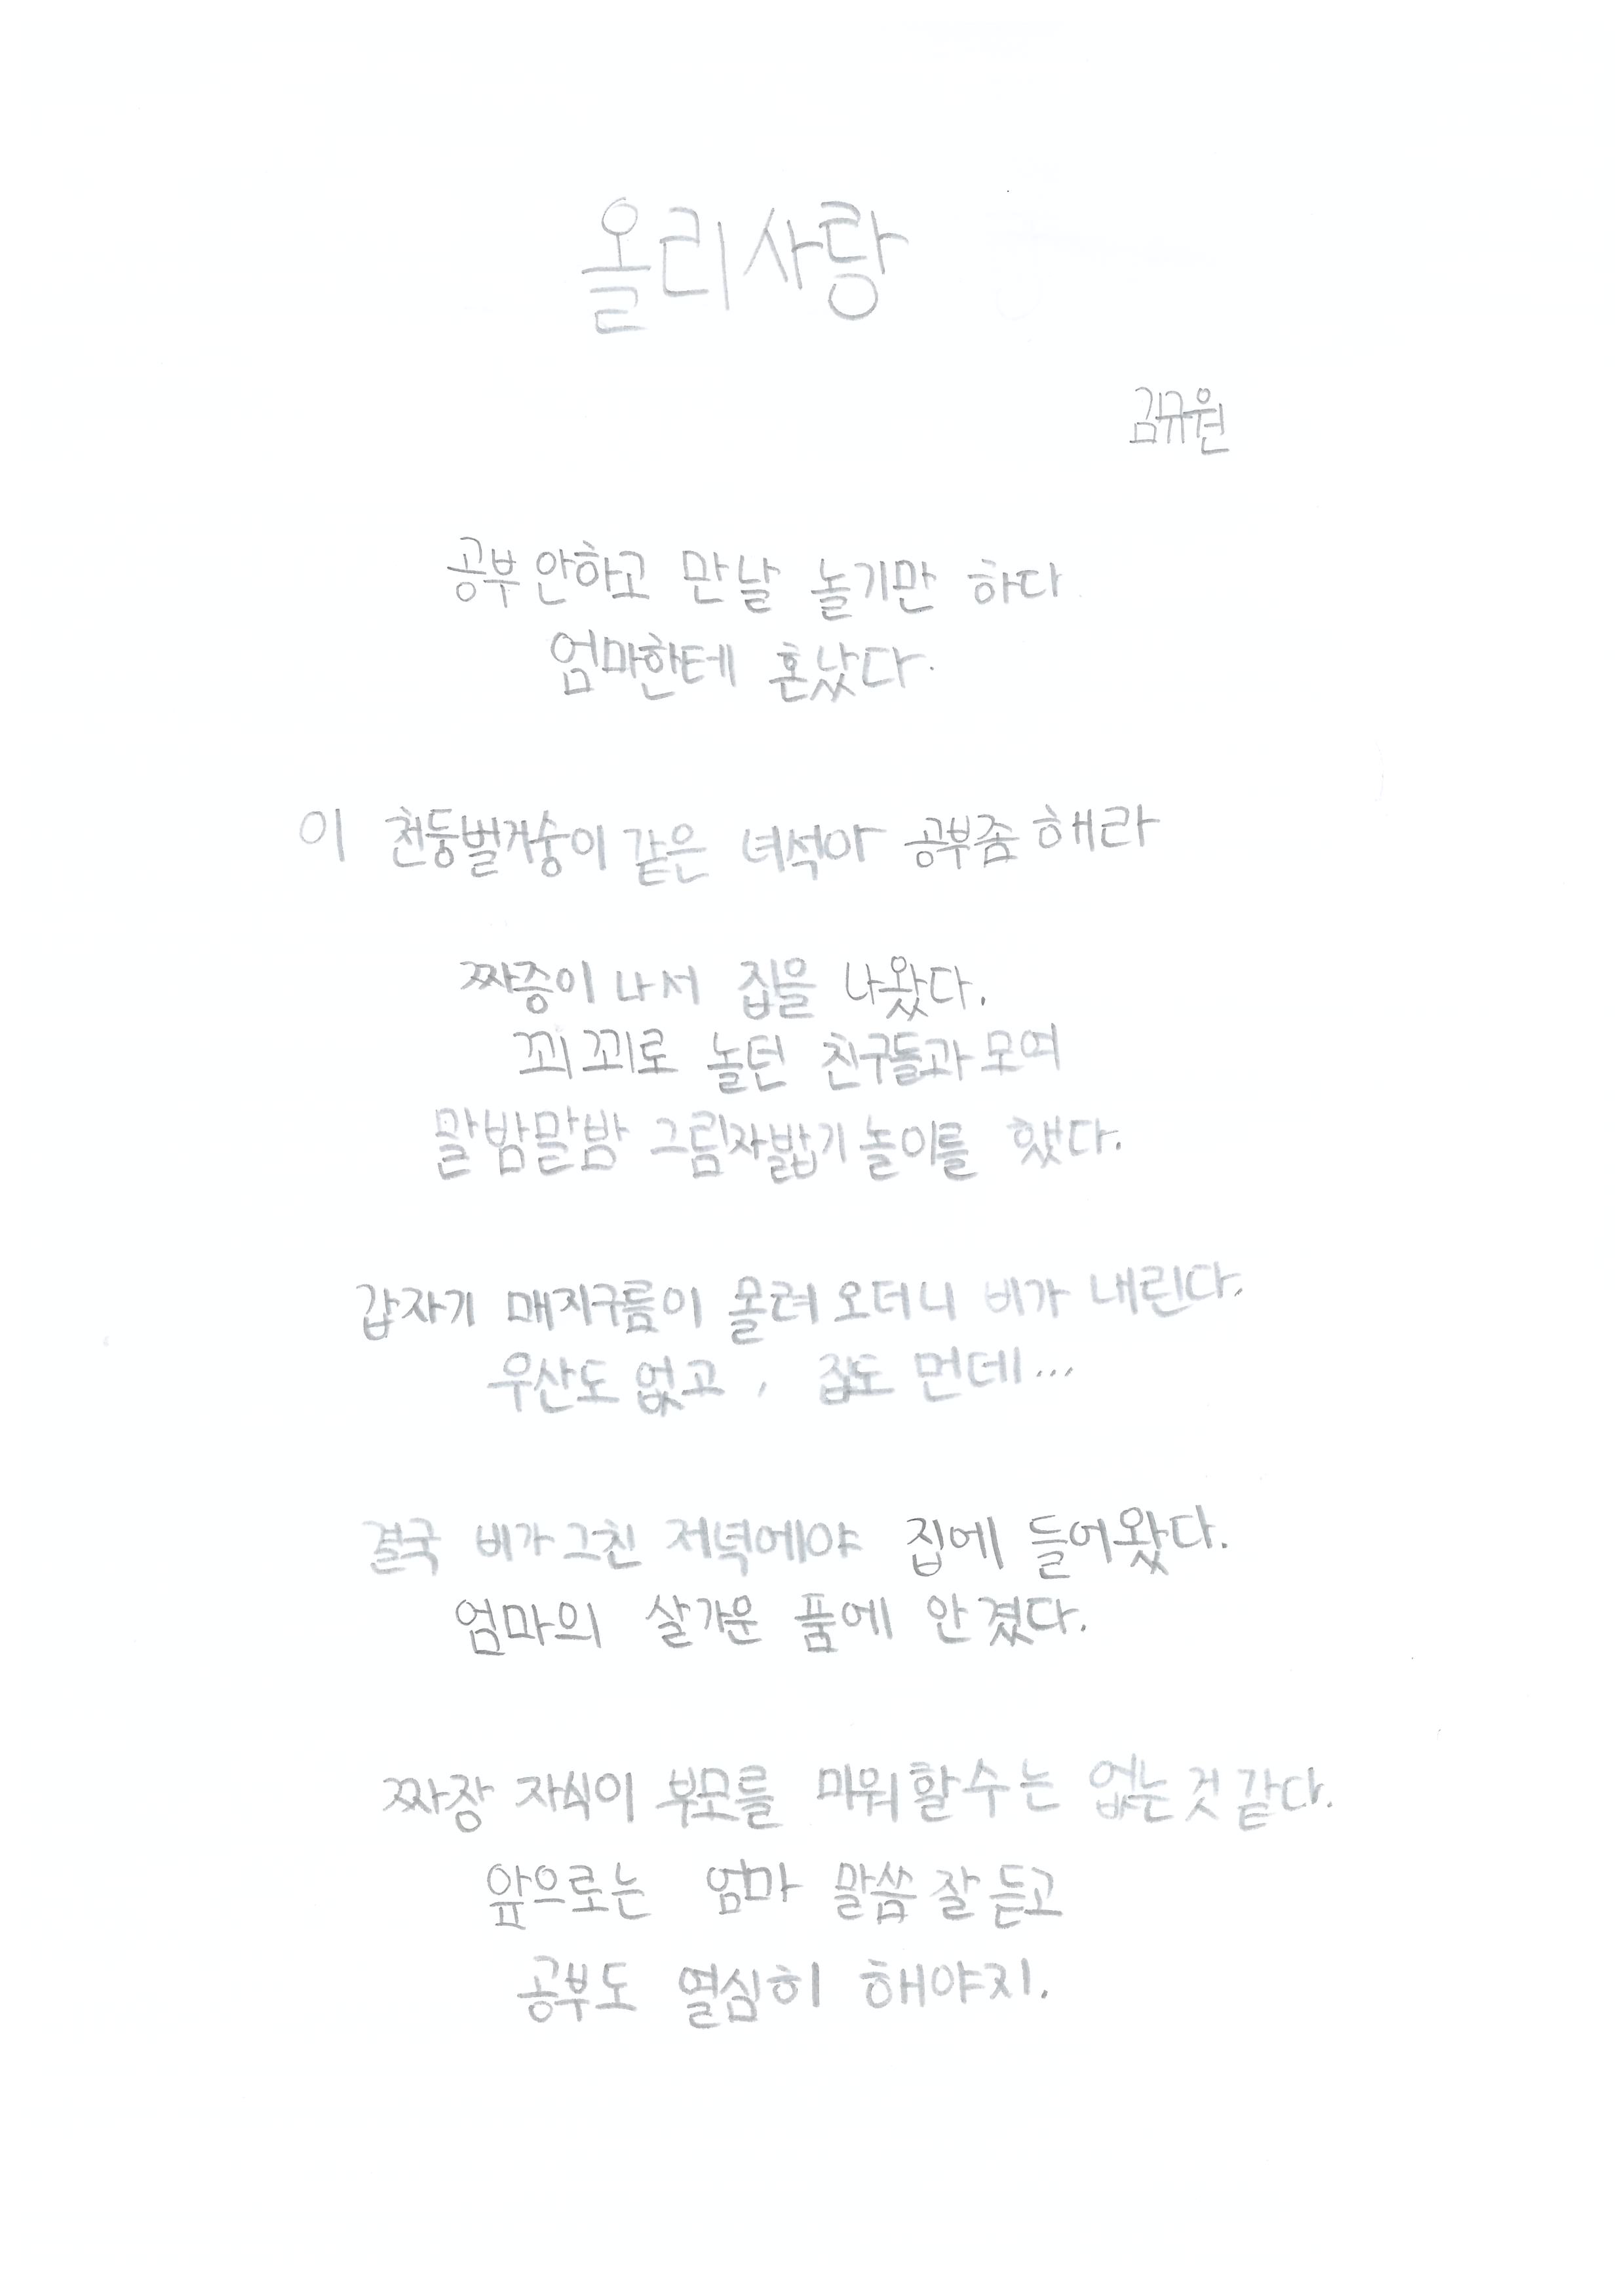 올리사랑
김규원
공부 안하고 만날 놀기만 하다
엄마한테 혼났다.
이 천둥벌거숭이 같은 녀석아 공부좀 해라
짜증이 나서 집을 나왔다.
꾀꾀로 놀던 친구들과 모여
말밤말밤 그림자밟기 놀이를 했다.
갑자기 매지구름이 몰려 오더니 비가 내린다.
우산도 없고, 집도 먼데...
결국 비가 그친 저녁에야 집에 들어왔다.
엄마의 살가운 품에 안겼다.
짜장 자식이 부모를 미워 할 수는 없는 것 같다.
앞으로는 엄마 말씀 잘 듣고
공부도 열심히 해야지.